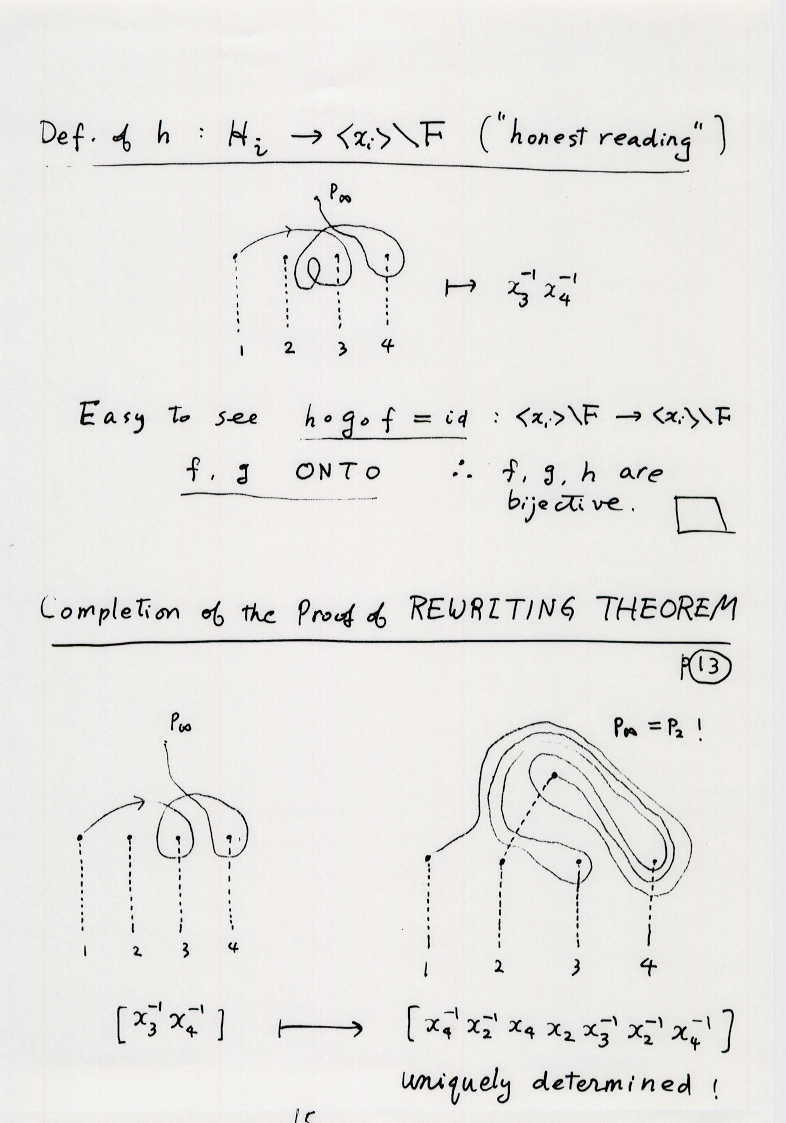 Def. of h : Hᵢ → <xᵢ>\F ("honest reading")
P∞
1 2 3 4
↦ x₃⁻¹ x₄⁻¹
Easy to see h∘g∘f = id : <xᵢ>\F → <xᵢ>\F
f, g ONTO ∴ f, g, h are
bijective. □
Completion of the Proof of REWRITING THEOREM
p⑬
P∞
P∞ = P₂ !
1 2 3 4
1 2 3 4
[x₃⁻¹ x₄⁻¹] ⟼ [x₄⁻¹ x₂⁻¹ x₄ x₂ x₃⁻¹ x₂⁻¹ x₄⁻¹]
uniquely determined !